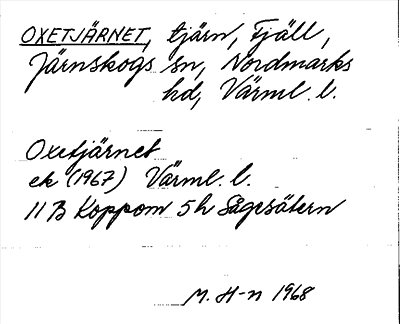 OXETJÄRNET, tjärn, Fjäll,
Järnskogs sn, Nordmarks
hd, Värml. l.
Oxetjärnet
ek (1967) Värml. l.
11 B Koppom 5 h Sågesätern
M. H-n 1968